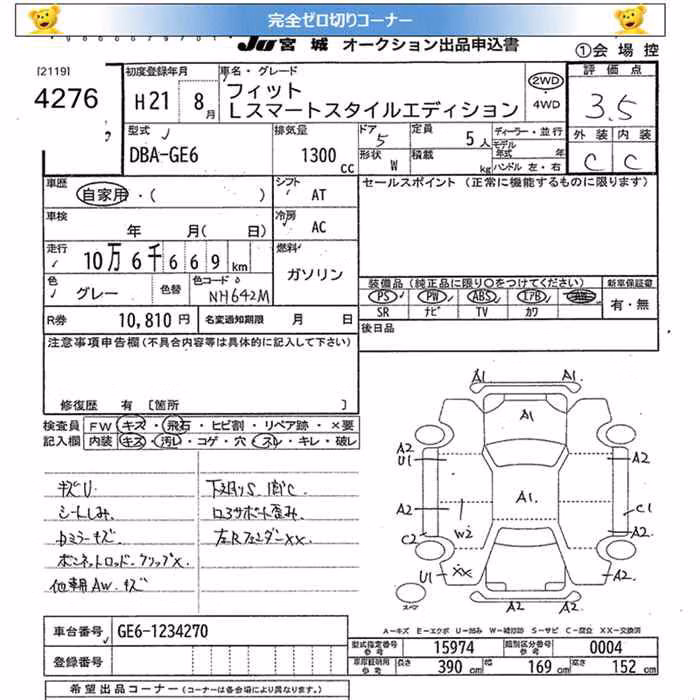 完全ゼロ切りコーナー
JU 宮城 オークション出品申込書
①会場控
[2119]
4276
初度登録年月
H21 8月
車名・グレード
フィット
Lスマートスタイルエディション
2WD
4WD
評価点
3.5
外装 内装
C C
型式
DBA-GE6
排気量
1300cc
ドア 5
形状 W
定員 5人
積載 kg
ディーラー・並行
モデル年式 年
ハンドル 左・右
車歴
自家用・( )
シフト
AT
セールスポイント (正常に機能するものに限ります)
車検
年 月( 日)
冷房
AC
走行
10万6千669km
燃料
ガソリン
色
グレー
色替
色コード
NH642M
装備品(純正品に限り○をつけてください)
PS PW ABS エアB
SR ナビ TV カワ
新車保証書
有・無
R券 10,810円
名変通知期限 月 日
後日品
注意事項申告欄(不具合内容等は具体的に記入して下さい)
修復歴 有 [箇所 ]
検査員記入欄
FW キズ・飛石・ヒビ割・リペア跡・×要
内装 キズ・汚レ・コゲ・穴・スレ・キレ・破レ
キズU
シートしみ
ボンネットロッド クリップX
他車用AW キズ
下回りS 腐C
左Rフェンダー XX
A1
A1
A2
U1
A2
A1
A2
C1
W2
C2
A2
U1
XX
A2
A2
A2
スペア
A-キズ E-エクボ U-凹み W-補修跡 S-サビ C-腐食 XX-交換済
車台番号 GE6-1234270
登録番号
型式指定番号参考 15974
類別区分番号参考 0004
車庫証明用参考 長さ 390 幅 169 高さ 152
希望出品コーナー (コーナーは各会場により異なります。)